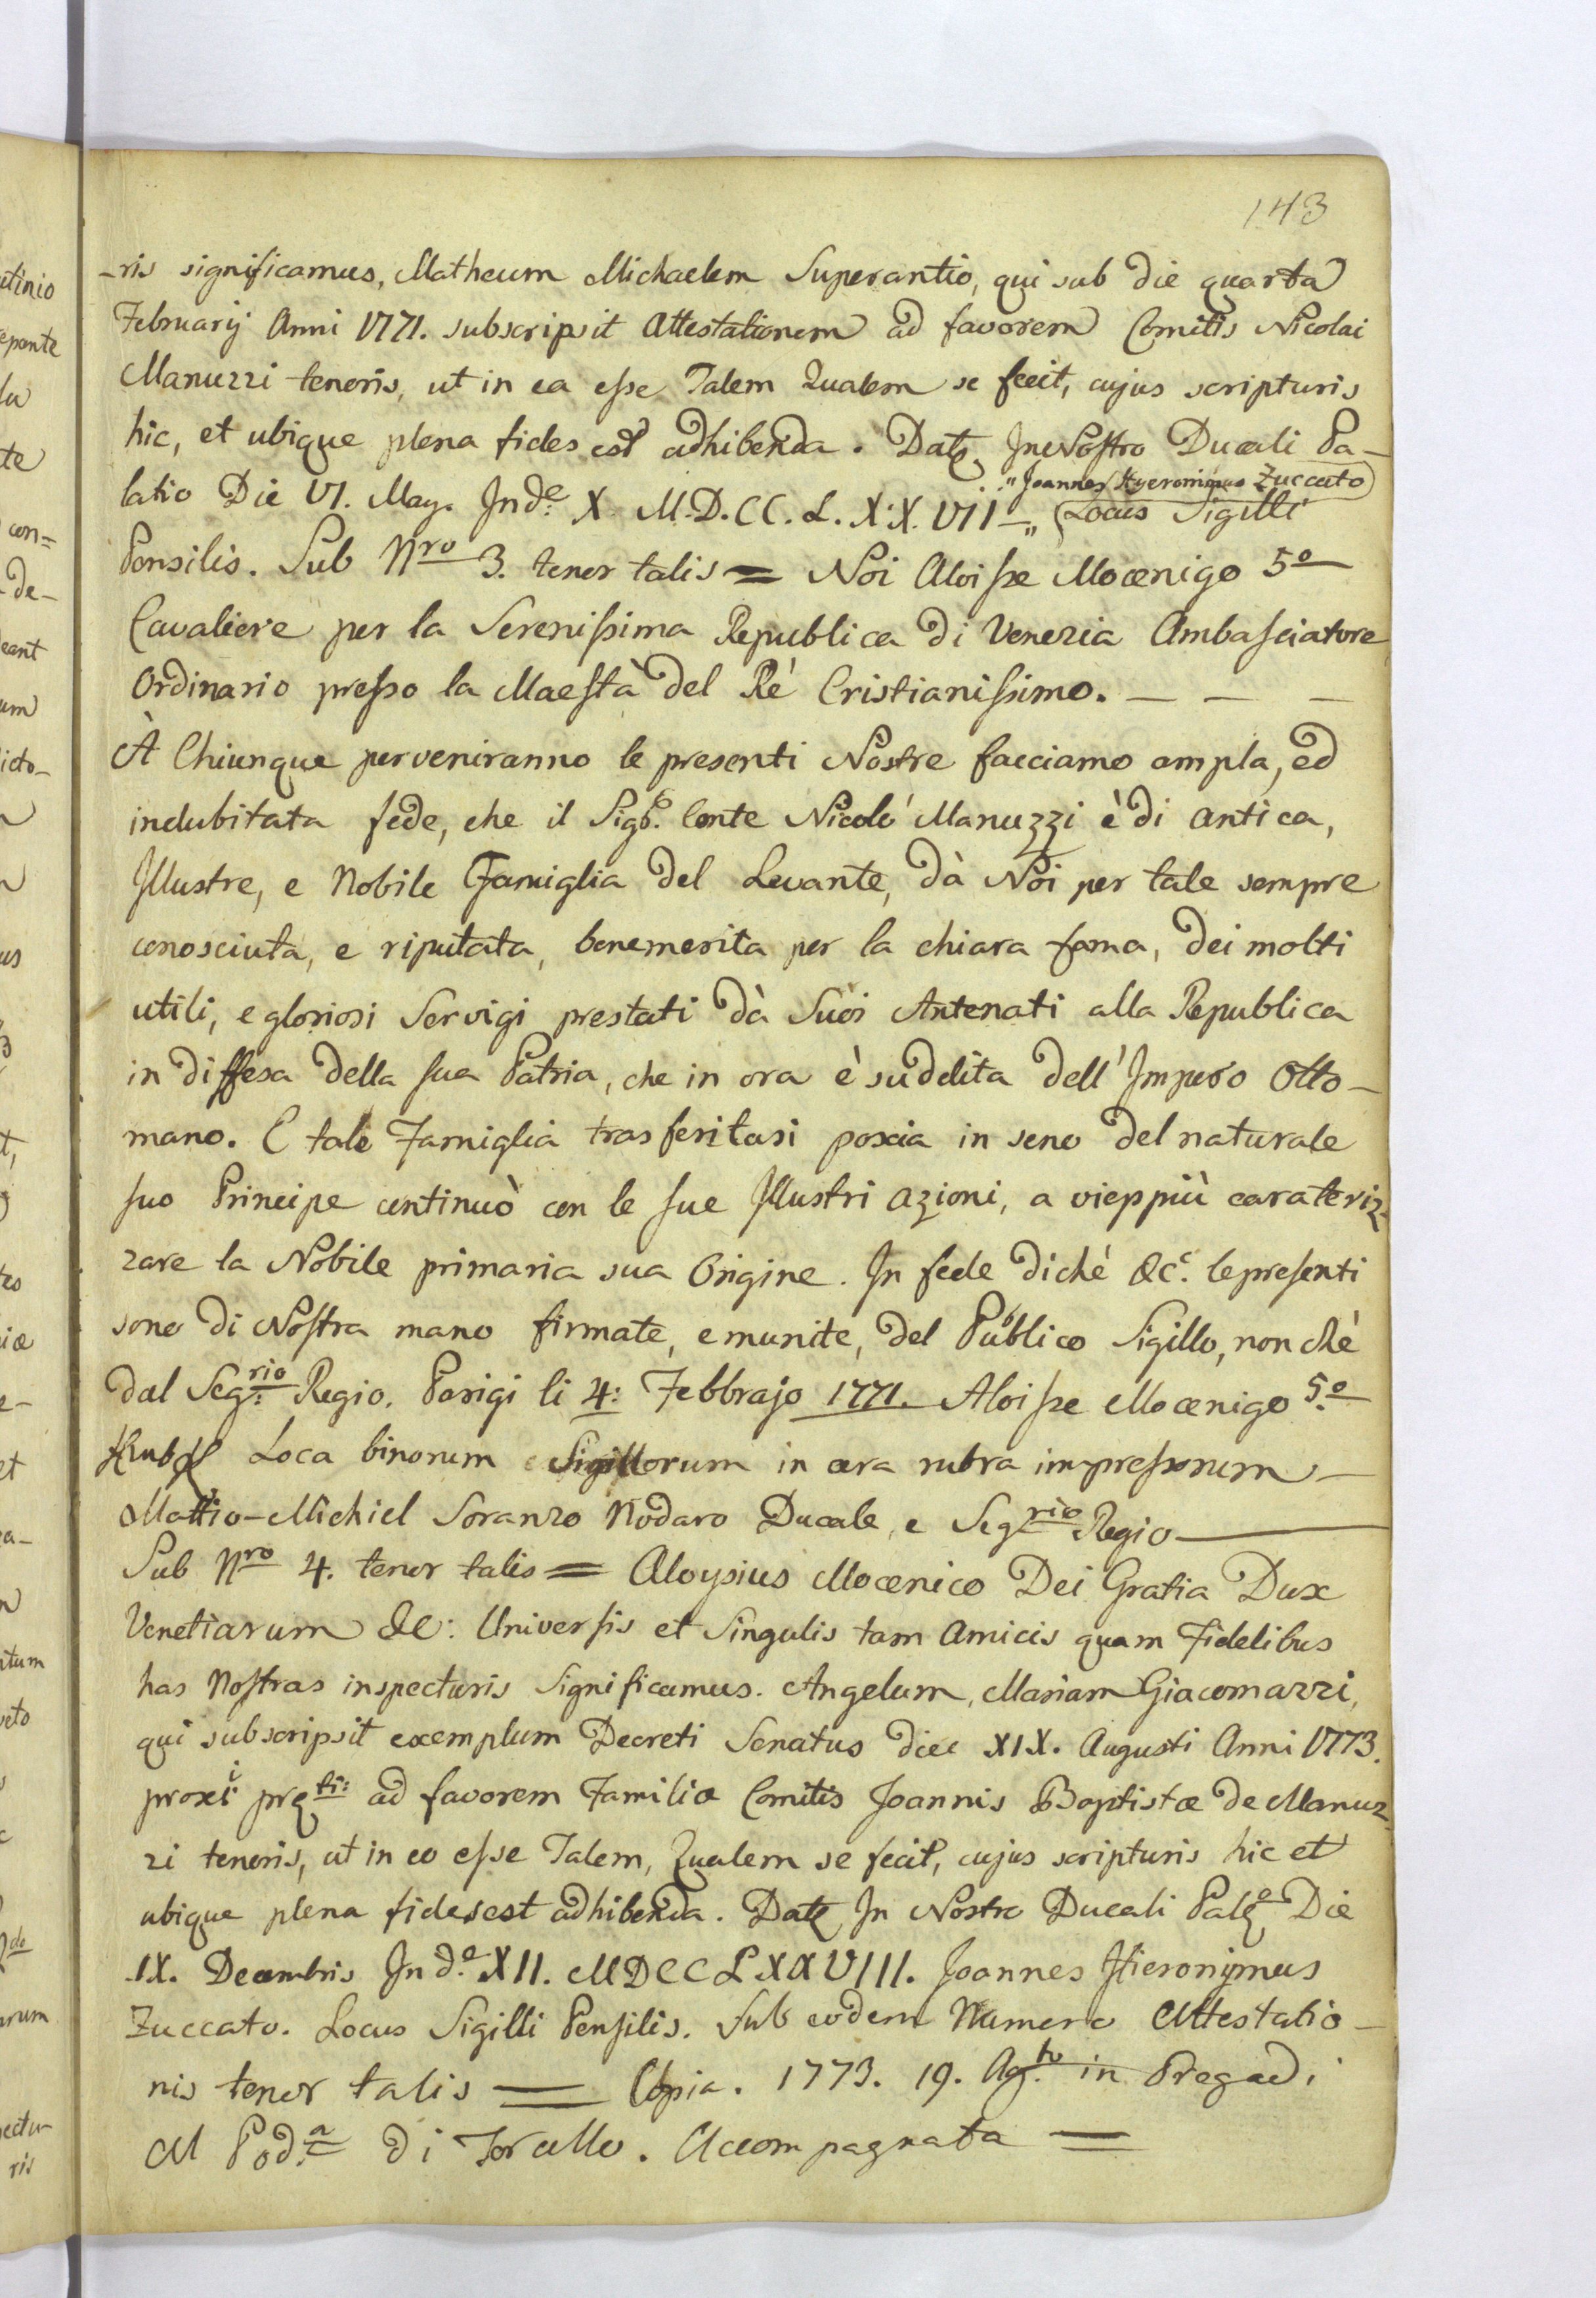 143
-ris significamus, Matheum Michaelem Superantio, qui sub die quarta
Februarij Anni 1771. subscripsit Attestationem ad favorem Comitis Nicolai
Manuzzi tenoris, ut in ea esse Talem Qualem se fecit, cujus scripturis
hic, et ubique plena fides est adhibenda. Dat. In Nostro Ducali Pa-
"Joannes Hyeronimus Zuccato
latio Die VI. May. Ind.e X M.D.CC.L.X.X.VII-„ Locus Sigilli
Pensilis. Sub Nro 3. tenor talis = Noi Aloise Mocenigo 5o
Cavaliere per la Serenissima Republica di Venezia Ambasciatore
Ordinario presso la Maestà del Rè Cristianissimo. — — —
À Chiunque perveniranno le presenti Nostre facciamo ampla, ed
indubitata fede, che il Sigr. Conte Nicolò Manuzzi è di antica,
Illustre, e Nobile Famiglia del Levante, dà Noi per tale sempre
conosciuta, e riputata, benemerita per la chiara fama, dei molti
utili, e gloriosi Servigi prestati dà Suoi Antenati alla Republica
in diffesa della sua Patria, che in ora è suddita dell' Impero Otto-
mano. E tale Famiglia trasferitasi poscia in seno del naturale
suo Principe continuò con le sue Illustri azioni, a vieppiù carateriz-
zare la Nobile primaria sua Origine. In fede dichè &c. le presenti
sono di Nostra mano firmate, e munite, del Publico Sigillo, non chè
dal Seg:rio Regio. Parigi li 4: Febbrajo 1771. Aloise Mocenigo 5.o
Loca binorum Sigillorum in cera rubra impressorum —
Mattio-Michiel Soranzo Nodaro Ducale, e Segrio Regio —
Sub Nro 4. tenor talis = Aloysius Mocenico Dei Gratia Dux
Venetiarum &c: Universis et Singulis tam Amicis quam Fidelibus
has Nostras inspecturis Significamus. Angelum, Mariam Giacomazzi,
qui subscripsit exemplum Decreti Senatus diei XIX. Augusti Anni 1773.
proxi prę.ti: ad favorem Familiæ Comitis Joannis Baptistæ de Manuz-
zi tenoris, ut in eo esse Talem, Qualem se fecit, cujus scripturis hic et
ubique plena fides est adhibenda. Dat. In Nostro Ducali Pal.o Die
IX. Decembris Ind.e XII. MDCCLXXVIII. Joannes Hieronymus
Zuccato. Locus Sigilli Pensilis. Sub eodem Numero Attestatio-
nis tenor talis = Copia. 1773. 19. Ag.to in Pregadi
Al Pod.a di Torcello. Accompagnata =